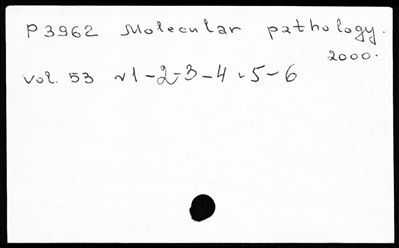 P3962 Molecular pathology.
2000.
vol. 53 №1-2-3-4-5-6